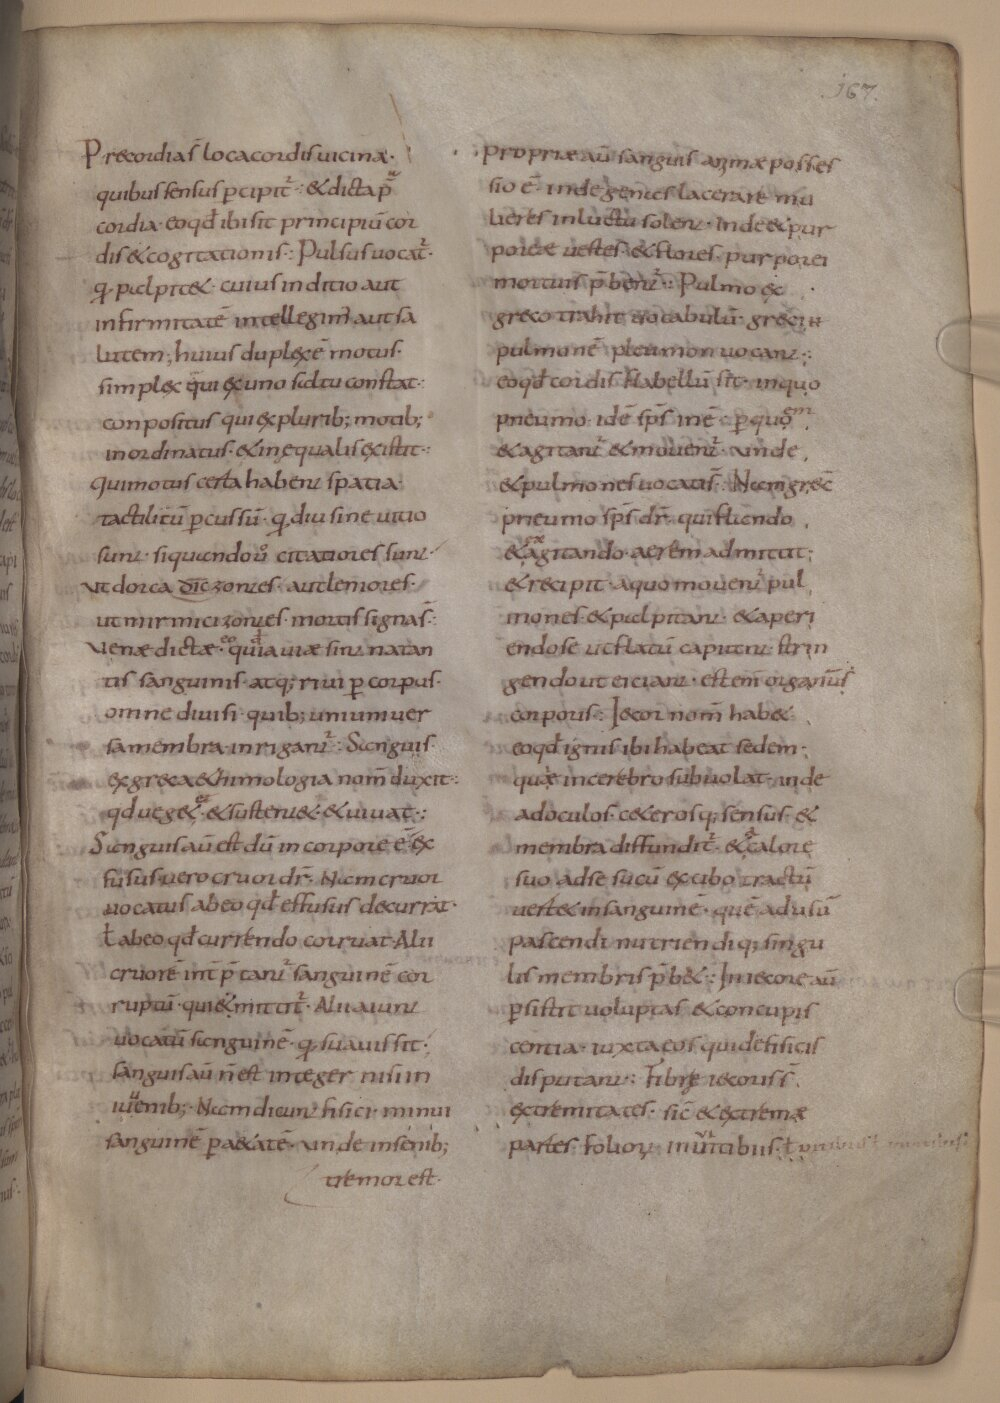 167.
Precordia s̄ loca cordis uicina·
quibus sensus ꝑcipit᷑·: & dicta p̄
cordia· eo qđ ibi sit principiū cor
dis & cogitationis·: Pulsus uocat᷑·
ꝙ palpitet· cuius inditio aut
infirmitatē intellegim᷒ aut sa
lutem; huius duplex ē motus·
simplex qui ex uno saltu constat·:
conpositus qui ex plurib; motib;
inordinatus· & inequalis existit·:
Qui motus certa habent spatia·
tactilicū ꝑcussū· ꝙ diu sine uitio
sunt· siquando u͛o citatiores sunt·
ut dorca zontes· aut leniores·
ut mirmicizontes· mortis signa s̄·:
Venæ dictæ· eo qđ uiæ sint natan
tis sanguinis· atq; riui ꝑ corpus·
omne diuisi· quib; uniuuer
sa membra inrigant᷑·: Sanguis·
ex greca ethimologia nom̄ duxit·:
qđ ueget& & sustentet· & uiuat·:
Sanguis aū est dū in corpore ē· ex
fusus uero cruor dr̄· Nam cruor
uocatus ab eo qđ effusus decurrat·
ł ab eo qđ currendo corruat· Alii
cruorē int̄p̄tant᷑ sanguinē cor
ruptū· qui emittit᷑· Alii aiunt
uocatū sanguinē· ꝙ suauis sit·;
sanguis aū n̄ est integer nisi in
iuuenib;· Nam dicunt fisici minui
sanguinē ꝑ aetatē· unde in senib;
tremor est·
Propriæ aū sanguis animæ posses
sio ē· inde genas lacerare mu
lieres in luctu solent· Inde & pur
poreæ uestes· & flores purporei
mortuis p̄bent᷑·: Pulmo ex
greco trahit uocabulū· greci n
pulmonē pleumon uocant·:
eo qđ cordis flabellū sit· in quo
pneumo· idē sp̄s inē· ꝑ quem
& agitant᷑ & mouent᷑· unde
& pulmones uocati s̄· Nam grec̄
pneumo sp̄s dr̄· qui flando
& exagitando· aerem admittit;
& recipit· a quo mouent᷑ pul
mones· & palpitant· & aperi
endo se ut flatū capiunt· strin
gendo ut eiciant· est em̄ organū
corporis·: Iecor nom̄ habet
eo qđ ignis ibi habeat sedem·
quæ in cerebro subuolat· inde
ad oculos· ceterosq; sensus· &
membra diffundit᷑· & calore
suo ad se sucū ex cibo tractū
uertet in sanguine· quē ad usū
pascendi nutriendiq; singu
lis membris p̄bet·: In iecore aū
ꝑsistit uoluptas & concupis
centia· iuxta eos qui de fisicis
disputant·: Fibræ iecoris s̄
extremitates· sic̄ & extremæ
partes· folioꝝ in uitibus· ł